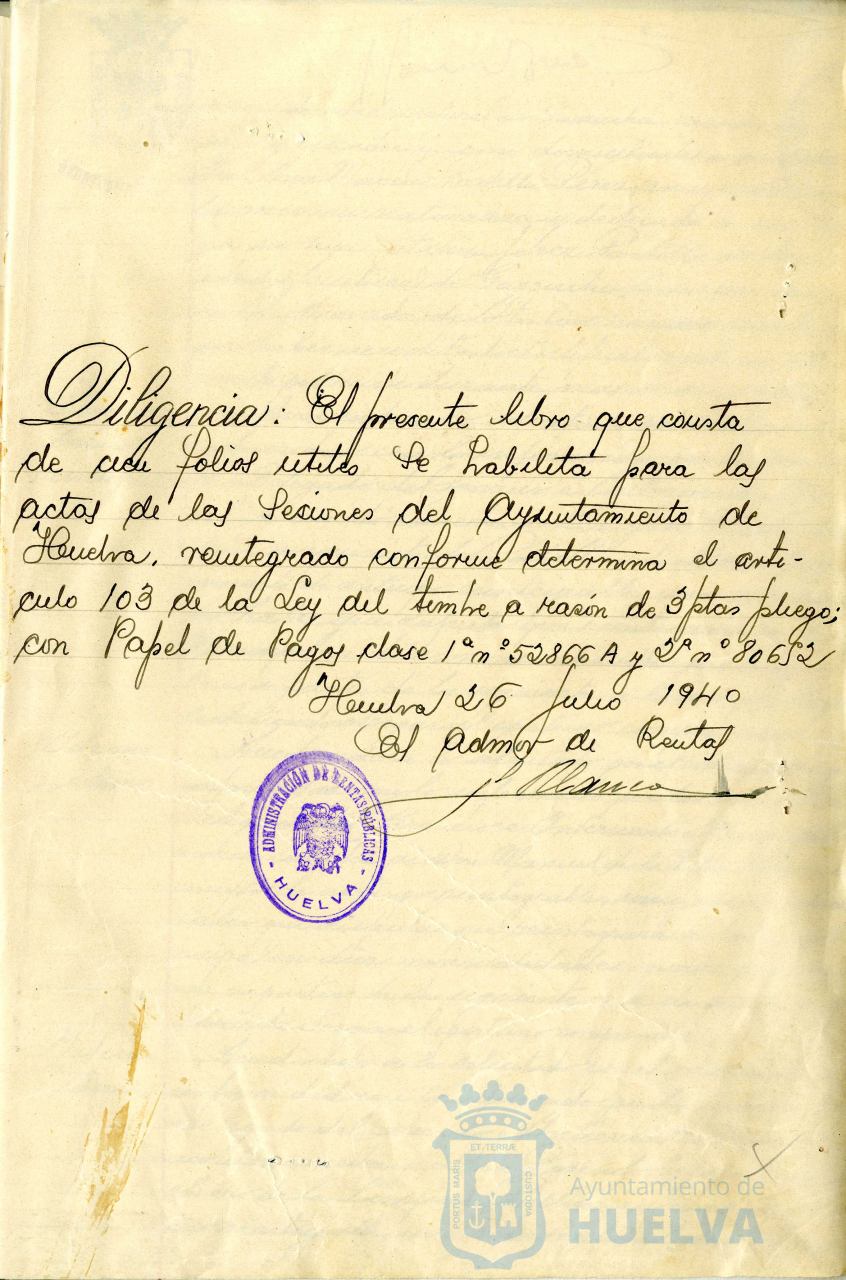 Diligencia: El presente libro que consta
de cien folios utiles se habilita para las
actas de las Sesiones del Ayuntamiento de
Huelva, reintegrado conforme determina el arti-
culo 103 de la Ley del timbre a razón de 3 ptas pliego;
con Papel de Pagos clase 1ª nº 52866 A y 2ª nº 80652
Huelva 26 Julio 1940
El Admor de Rentas
Blanco
ADMINISTRACIÓN DE RENTAS PÚBLICAS
- HUELVA -
PORTUS MARIS ET TERRÆ CUSTODIA
Ayuntamiento de
HUELVA